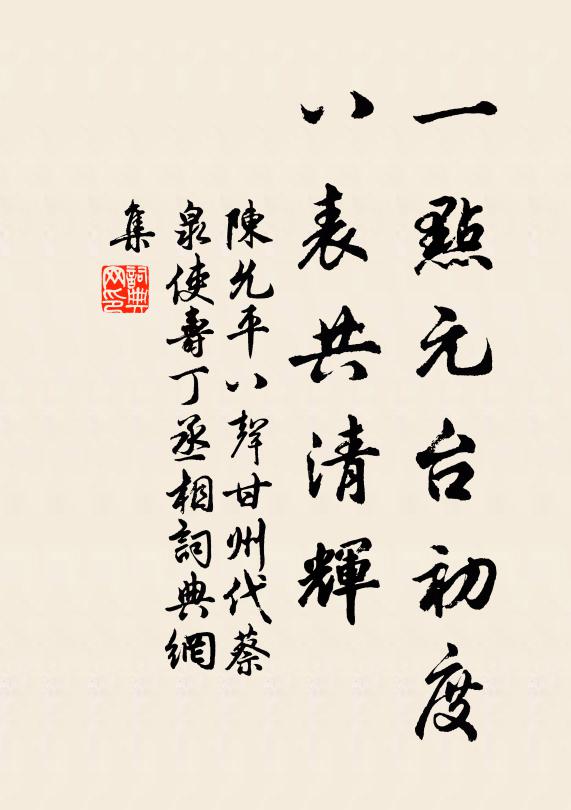 一點元台初度
八表共清輝
陳允平八聲甘州代蔡
泉使壽丁丞相詞典網
集
詞典網印